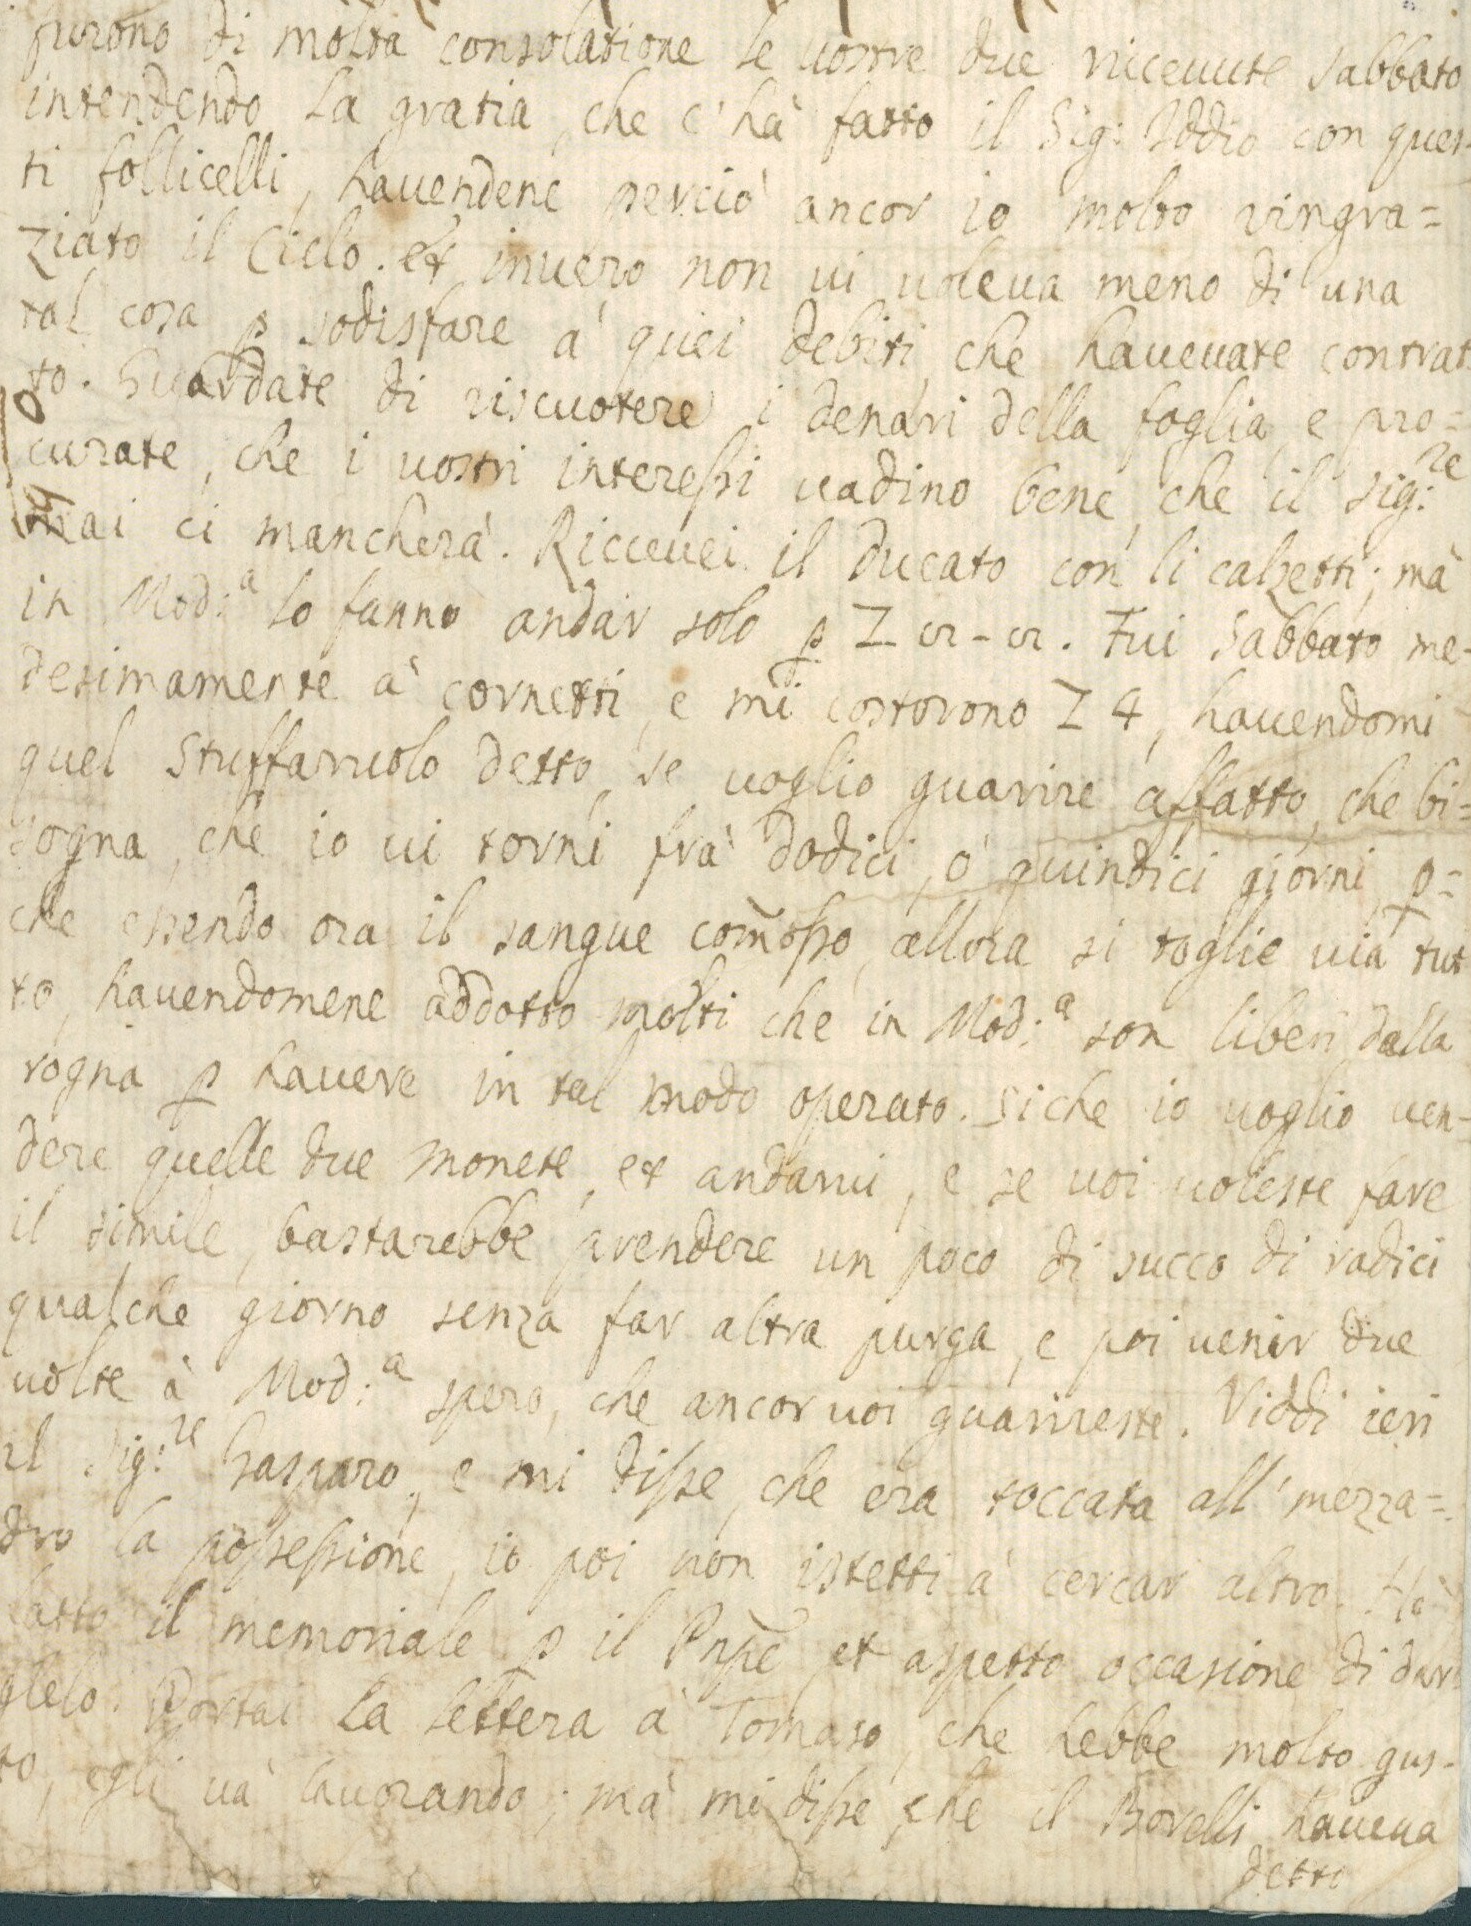 furono di molta consolatione le uostre due riceuute sabbato
intendendo la gratia, che c'hà fatto il Sig: Iddio con ques-
ti follicelli, hauendene perciò ancor io molto ringra=
ziato il Cielo. et inuero non ui uoleua meno di una
tal cosa p sodisfare à quei debiti, che haueuate contrat
to. Guardate di riscuotere i denari della foglia, e pro=
curate, che i uostri interessi uadino bene, che il Sig:re
mai ci mancherà. Riceuei il Ducato con li calzetti; mà
in Mod:a lo fanno andar solo p Z . Fui Sabbato me-
desimamente à cornetti, e mi costorono Z 4, hauendomi
quel Stuffaruolo detto, se uoglio guarire affatto, che bi=
sogna, che io ui torni frà dodici, ò quindici giorni, p=
che essendo ora il sangue com̃osso, allora si toglie uia tut
to, hauendomene addotto molti che in Mod:a son liberi dalla
rogna p hauere in tal modo operato. Siche io uoglio uen-
dere quelle due monete, et andarui, e se uoi uoleste fare
il simile, bastarebbe prendere un poco di succo di radici
qualche giorno senza far altra purga, e poi uenir due
uolte à Mod:a spero, che ancor uoi guarireste. Viddi ieri
il Sig:re Gasparo, e mi disse, che era toccata all'mezza=
dro la possessione, io poi non istetti à cercar altro. Hò
fatto il memoriale p il Prpe et aspetto occasione di dar
glelo. Portai la lettera à Tomaso, che hebbe molto gus-
to, egli uà lauorando; mà mi disse, che il Borelli haueua
detti